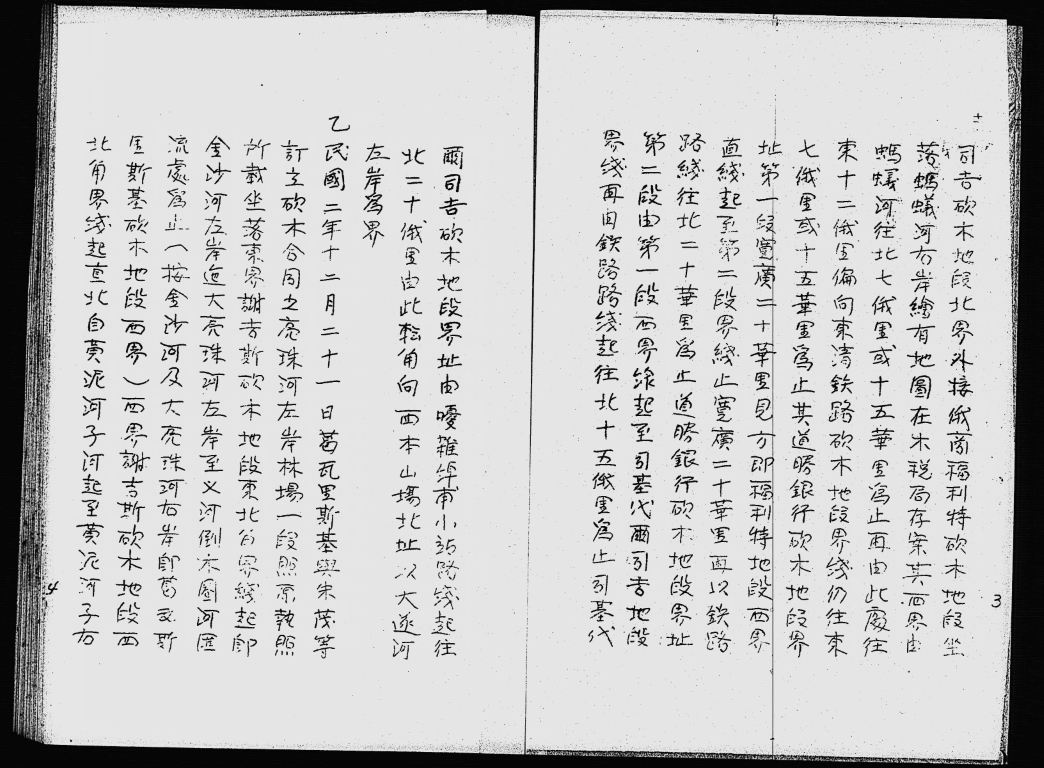 司吉砍木地段北界外接俄商福利特砍木地段坐
落螞蟻河右岸繪有地圖在木税局存案其西界由
螞蟻河往北七俄里或十五華里為止再由此處往
東十二俄里偏向東清鉄路砍木地段界线仍往東
七俄里或十五華里為止其道勝銀行砍木地段界
址第一段寬廣二十華里見方即福利特地段西界
直綫起至第二段界綫止寬廣二十華里再以鉄路
路綫往北二十華里為止道勝銀行砍木地段界址
第二段由第一段西界綫起至司基代爾司吉地段
界线再由鉄路路綫起往北十五俄里為止司基代
3
爾司吉砍木地段界址由嘎雅埠甫小站路线起往
北二十俄里由此転角向西本山場北址以大遂河
左岸為界
乙民國二年十二月二十一日葛瓦里斯基與朱茂等
訂立砍木合同之亮珠河左岸林場一段照原執照
所載坐落東界謝吉斯砍木地段東北角界綫起即
金沙河左岸迤大亮珠河左岸至义河倒木圈河匯
流處為止(按金沙河及大亮珠河右岸即葛瓦斯
里斯基砍木地段西界)西界謝吉斯砍木地段西
北角界线起直北自黄泥河子河起至黄泥河子右
4